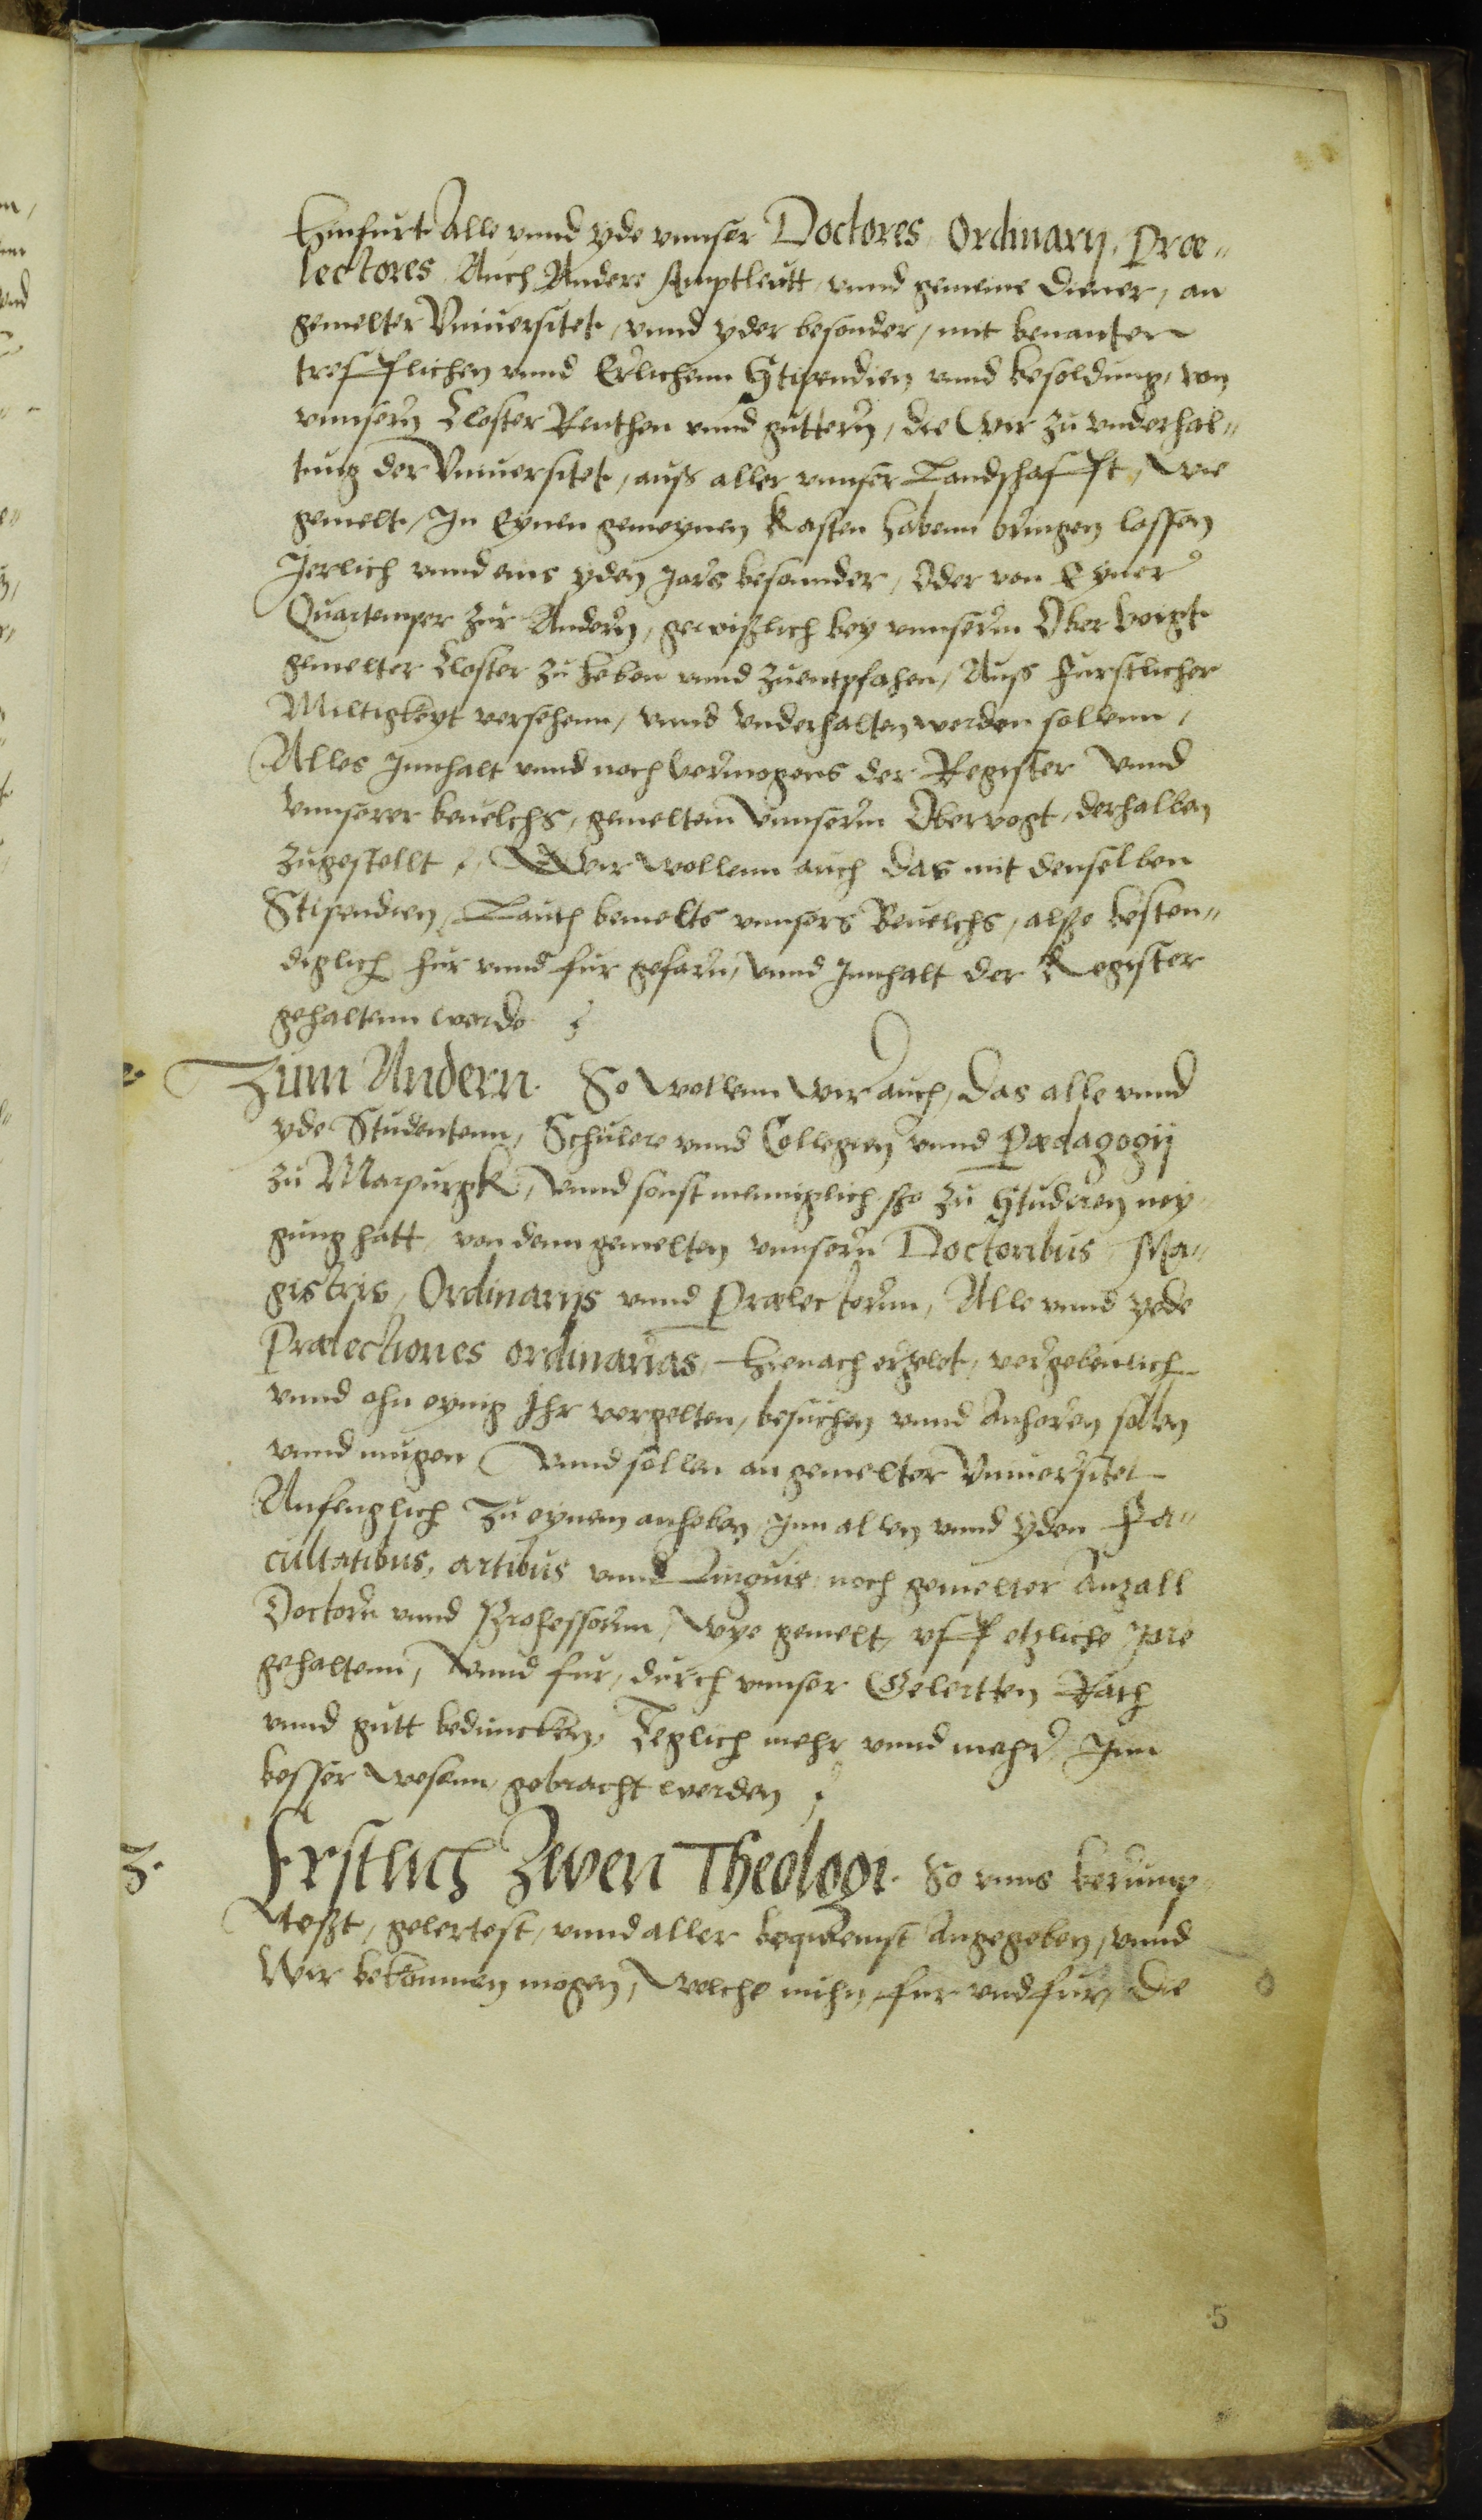 Hinfurt Alle vnnd yde vnnser Doctores, Ordinarij, Proe„
lectores, Auch Andere Amptleutt, vnnd gemeine diener, an
gemelter Vniuersitet, vnnd yder besonder, mit benanten
trefflichen vnnd Erlichenn Stipendien vnnd besoldung, von
vnnsern Closter Renthen vnnd guttern, die Wir zu vnderhal„
tung der Vniuersitet, auß aller vnnser Landschafft, Wie
gemelt, In Eynen gemeynen Kasten habenn bringen lassen
Jerlich vnnd eins yden Jars besonnder, Oder von Eyner
Quartemper zur Andern, gewißlich bey vnnserm Ober Voigt
gemelter Closter zu heben vnnd zuentpfahen, Auß furstlicher
Miltigkeyt versehenn, vnnd vnderhalten werden sollenn,
Alles Innhalt vnnd nach vermogens der Register vnnd
vnnserer beuelchs, gemeltem vnnserm Obervogt, derhalben
zugestellt, Wir wollenn auch das mit denselben
Stipendien, Lauth bemelts vnnsers Beuelchs, alßo besten„
diglich fur vnnd fur gefarn, vnnd Innhalt der Register
gehaltenn werde
2. Zum Andern. So wollenn wir auch, das alle vnnd
yde Studentenn, Schulere vnnd Collegien vnnd Pædagogij
zu Marpurgk, vnnd sonst menniglich, so zu Studiren ney„
gung hatt, von denn gemelten vnnsern Doctoribus, Ma„
gistris, Ordinarijs vnnd Prælectornn, Alle vnnd yede
Prælectiones ordinarias, hienach erzelet, vergebenlich
vnnd ohn eynig Ihr vergelten, besuchen vnnd Anhoren sollen
vnnd mugen Vnnd sollen an gemelter Vniuersitet
Anfenglich zu eynem anheben, Inn allen vnnd yden Fa„
cultatibus, artibus vnnd Linguis, noch gemelter Anzall
Doctorn vnnd Professornn, Wye gemelt, vff etzliche Jare
gehaltenn, Vnnd fur, durch vnnser Gelertten Rath
vnnd gutt beduncken, Teglich mehr vnnd mehr, Inn
besser wesenn gebracht werden
3. Erstlich Zwen Theologi. So vnns berump„
teßt, gelertest, vnnd aller bequemst Angegeben, vnnd
Wir bekommen mogen, Welche fur vnd fur, die
5